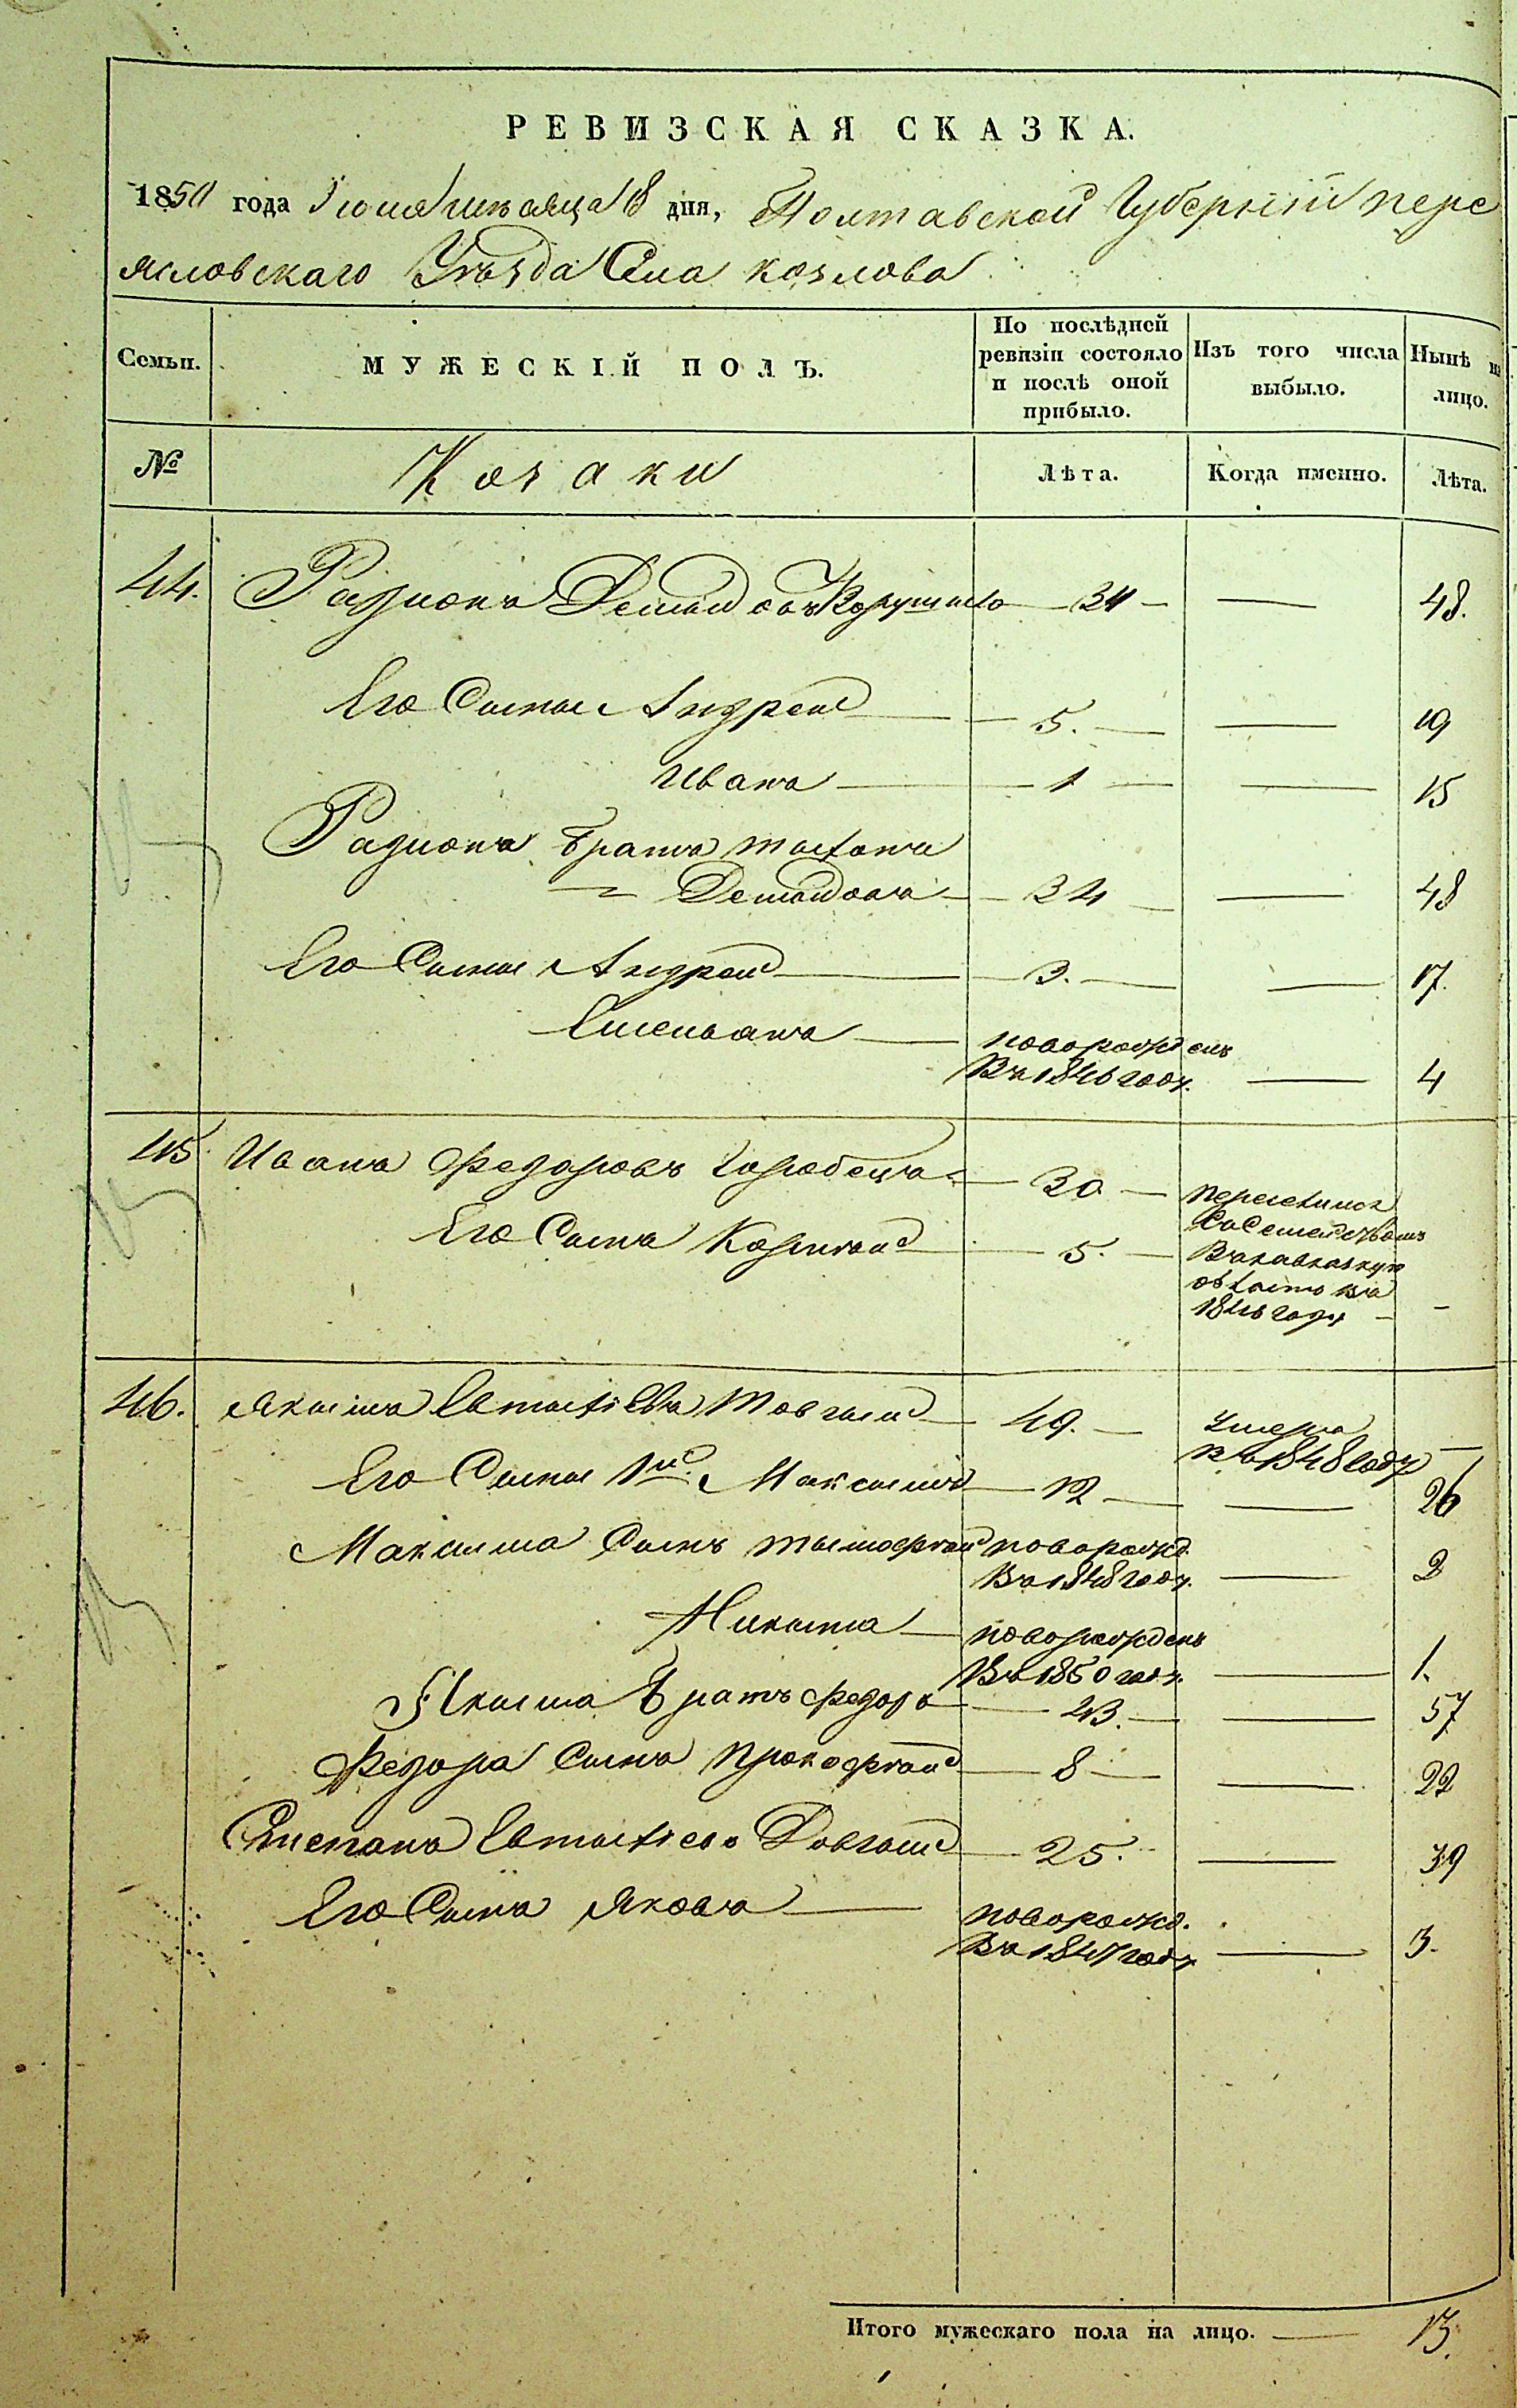 РЕВИЗСКАЯ СКАЗКА.
1850 года Іюня мѣсяца 8 дня, Полтавской Губерніи пере
яславскаго Уѣзда Села козлова
Семьи. МУЖЕСКІЙ ПОЛЪ. По послѣдней ревизіи состояло и послѣ оной прибыло. Изъ того числа выбыло. Нынѣ на лицо.
№ Козаки Лѣта. Когда именно. Лѣта.
44. Радионъ Демидовъ — 34 — — 48.
Его Сыны Андрей — 5. — — 19
Иванъ — 1 — — 15
Радиона братъ
Демидовъ — 34 — — 48
Его Сыны Андрей — 3. — — 17.
Емельянъ — новорожденъ
Въ 1846 году. — 4
45 Иванъ Федоровъ Горобецъ — 30 — переселился
Его Сынъ Корнѣй — 5. — Съ Семействомъ
В кавказкую
область въ
1846 году — -
46. Якимъ Евтастіевъ Товгий — 49. — Умеръ
въ 1848 году —
Его Сыны 1й Максимъ — 12 — — 26
Максима Сынъ тымофѣй новорожд.
Въ 1848 году. — 2
Никита — новорожденъ
Въ 1850 году. — 1.
Якима братъ Федоръ — 43. — — 57
Федора Сынъ прокофѣй — 8 — — 22
Степанъ Довгий — 25. — 39
Его Сынъ Яковъ — новорожд.
Въ 1847 году — 3.
Итого мужескаго пола на лицо. — 13.